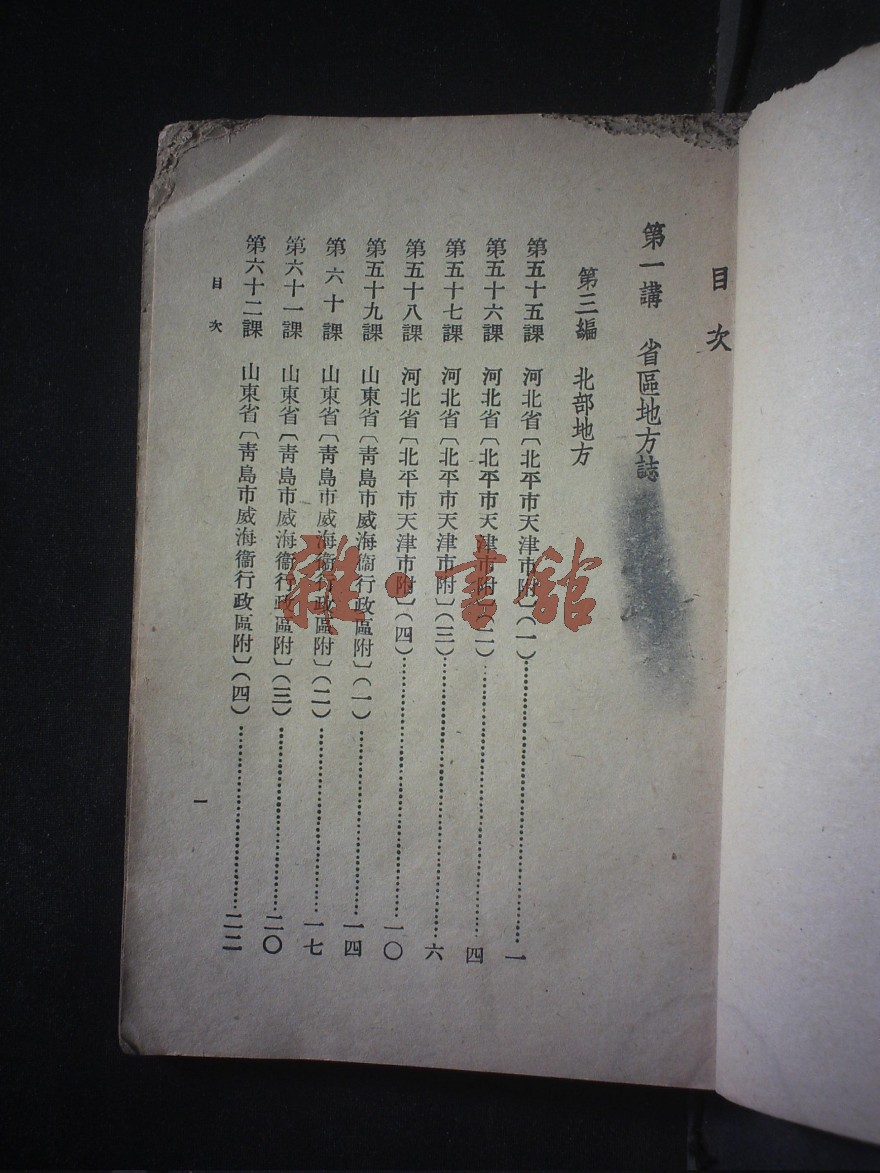 目次
第一講　省區地方誌
第三編　北部地方
第五十五課　河北省〔北平市天津市附〕(一)…………一
第五十六課　河北省〔北平市天津市附〕(二)…………四
第五十七課　河北省〔北平市天津市附〕(三)…………六
第五十八課　河北省〔北平市天津市附〕(四)…………一〇
第五十九課　山東省〔青島市威海衞行政區附〕(一)…………一四
第六十課　山東省〔青島市威海衞行政區附〕(二)…………一七
第六十一課　山東省〔青島市威海衞行政區附〕(三)…………二〇
第六十二課　山東省〔青島市威海衞行政區附〕(四)…………二二
目次　一
雜·書館